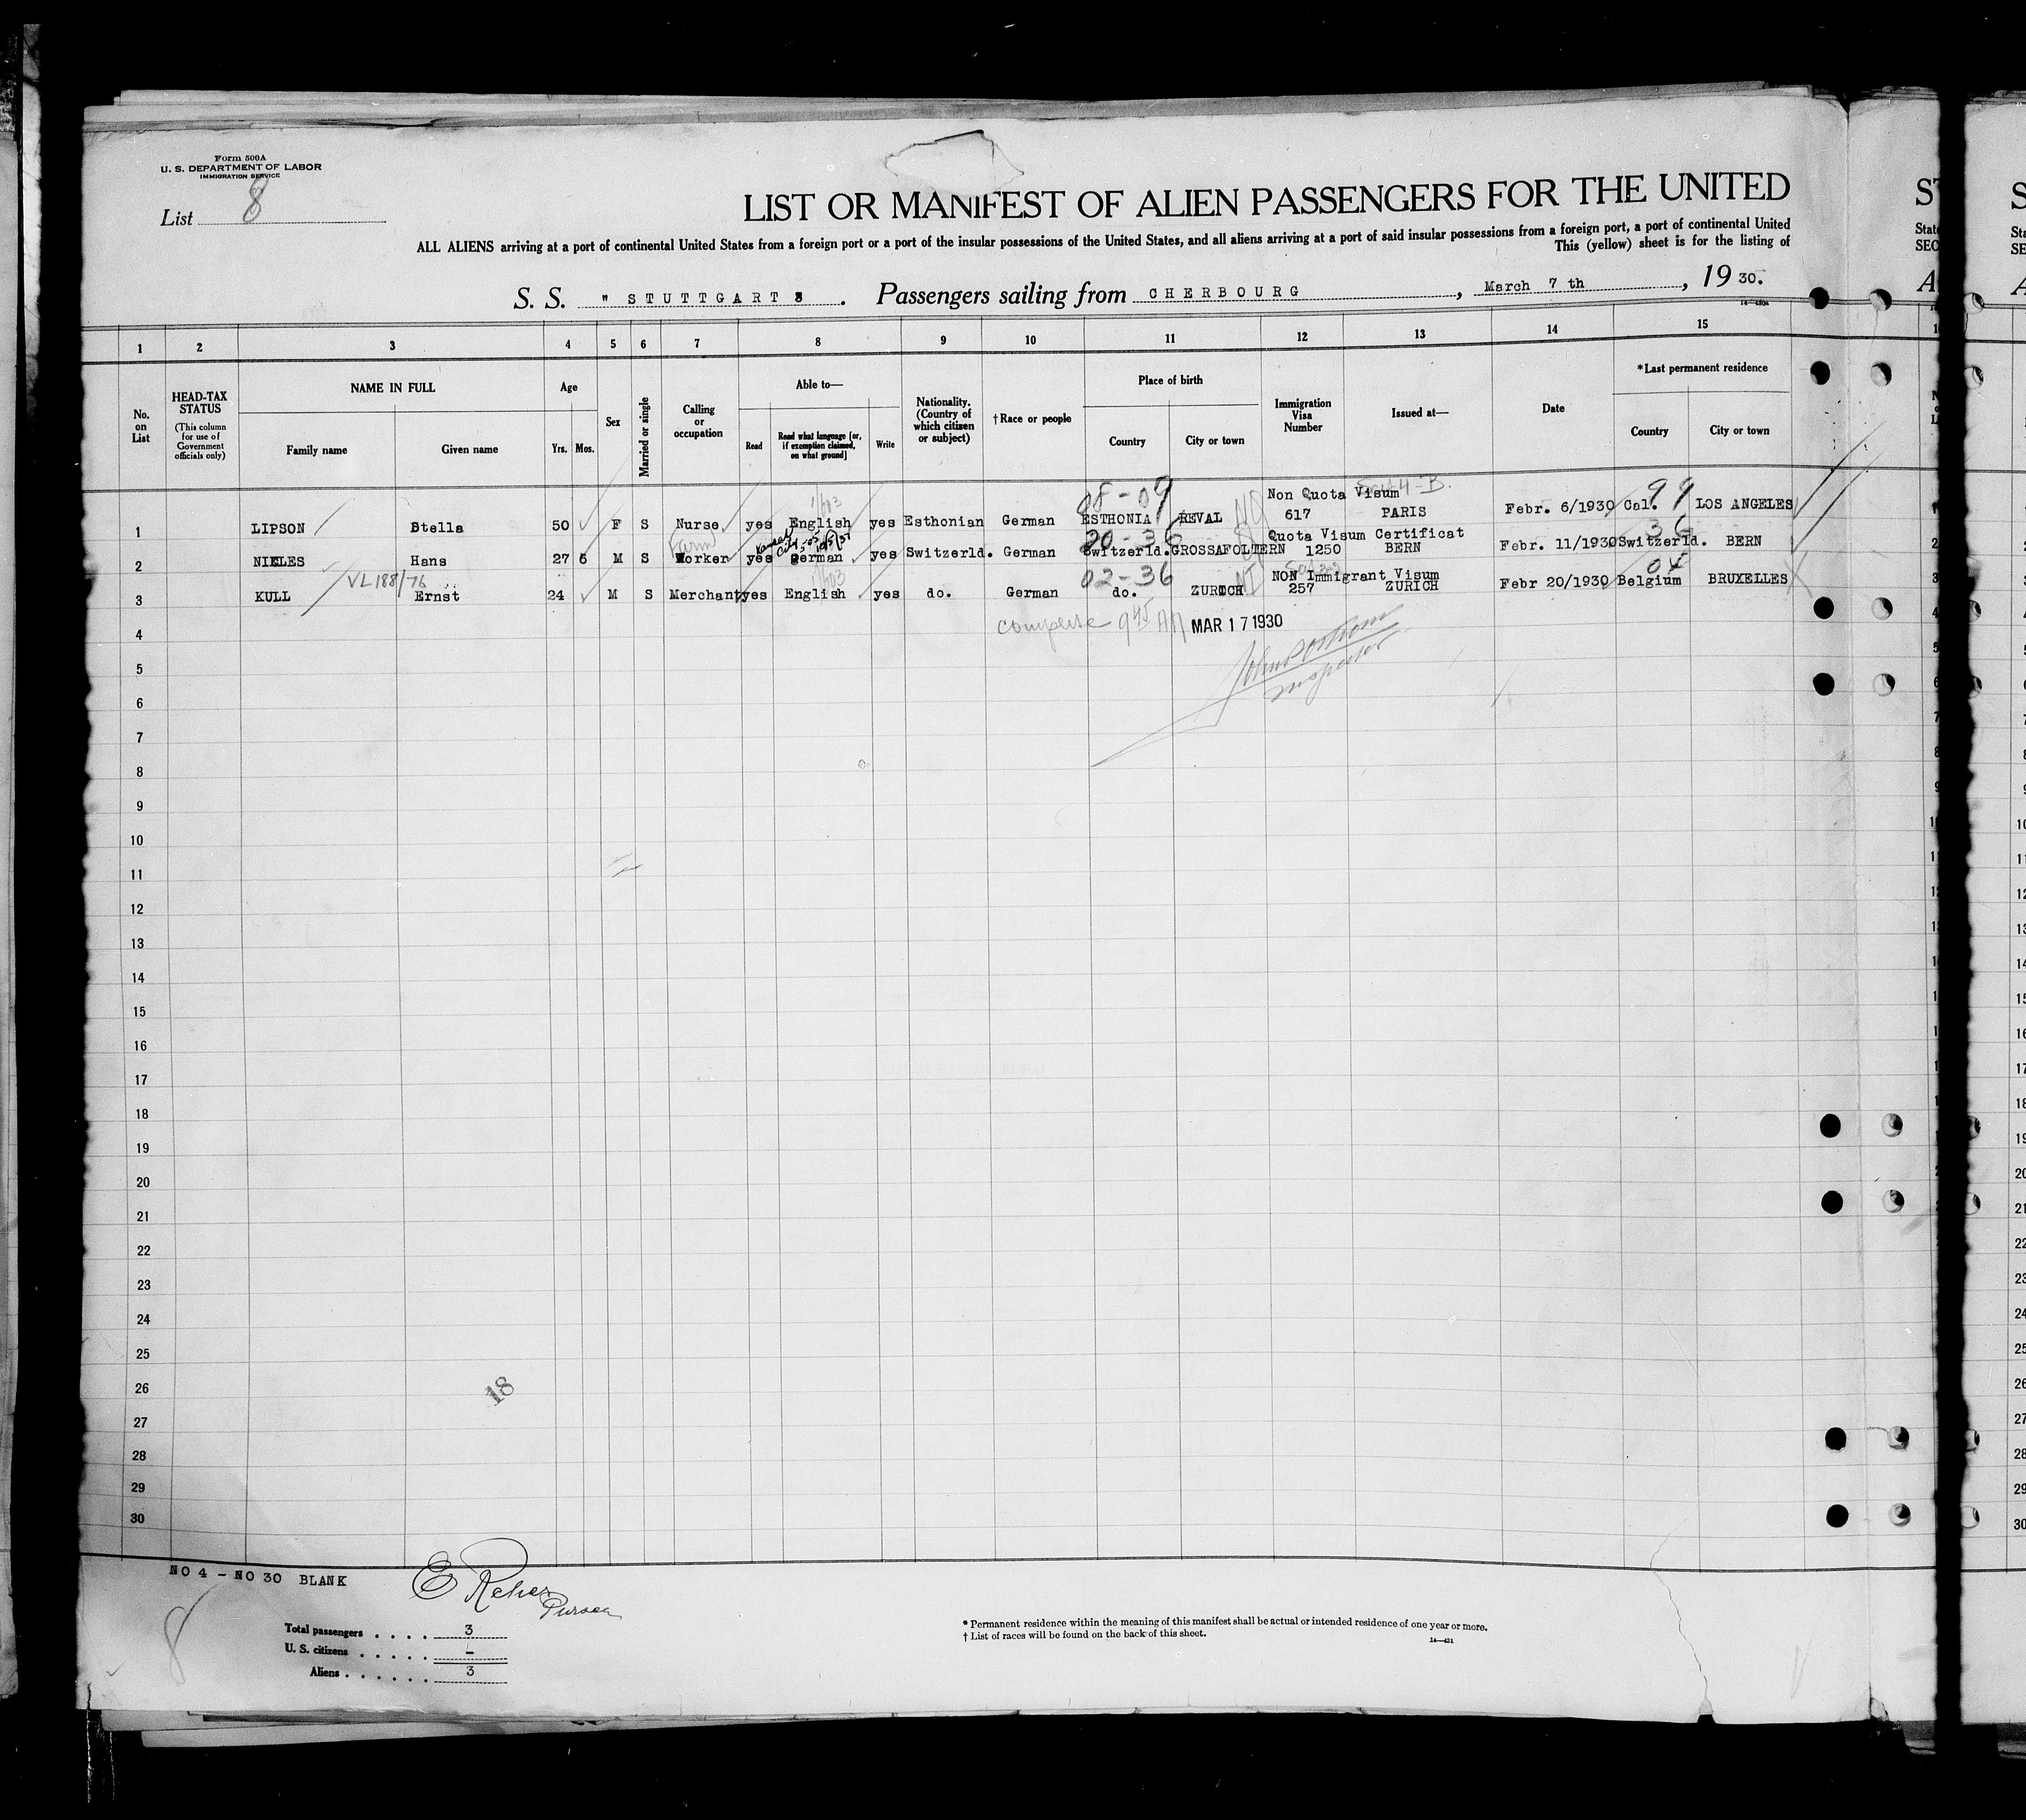 Form 500A
U. S. DEPARTMENT OF LABOR
IMMIGRATION SERVICE
List 8
LIST OR MANIFEST OF ALIEN PASSENGERS FOR THE UNITED
ALL ALIENS arriving at a port of continental United States from a foreign port or a port of the insular possessions of the United States, and all aliens arriving at a port of said insular possessions from a foreign port, a port of continental United
This (yellow) sheet is for the listing of
S. S. "STUTTGART". Passengers sailing from CHERBOURG, March 7 th, 19 30.
1 2 3 4 5 6 7 8 9 10 11 12 13 14 15
No. on List
HEAD-TAX STATUS (This column for use of Government officials only)
NAME IN FULL
Family name Given name
Age
Yrs. Mos.
Sex
Married or single
Calling or occupation
Able to—
Read
Read what language [or, if exemption claimed, on what ground]
Write
Nationality. (Country of which citizen or subject)
†Race or people
Place of birth
Country City or town
Immigration Visa Number
Issued at—
Date
*Last permanent residence
Country City or town
08-09 Non Quota Visum 99
1 LIPSON Btella 50 F S Nurse yes English yes Esthonian German ESTHONIA REVAL 617 PARIS Febr. 6/1930 Cal. LOS ANGELES
Farm 20-36 Quota Visum Certificat 36
2 NIKLES Hans 27 6 M S Worker yes german yes Switzerld. German Switzerld. GROSSAFOLTERN 1250 BERN Febr. 11/1930 Switzerld. BERN
VL188/76 02-36 NON Immigrant Visum 04
3 KULL Ernst 24 M S Merchant yes English yes do. German do. ZURICH 257 ZURICH Febr 20/1930 Belgium BRUXELLES
4 complete 9 45 AM MAR 17 1930
Inspector
5
6
7
8
9
10
11
12
13
14
15
16
17
18
19
20
21
22
23
24
25
26
18
27
28
29
30
NO 4 - NO 30 BLANK
E Reher
Purser
8
Total passengers 3
U. S. citizens -
Aliens 3
* Permanent residence within the meaning of this manifest shall be actual or intended residence of one year or more.
† List of races will be found on the back of this sheet.